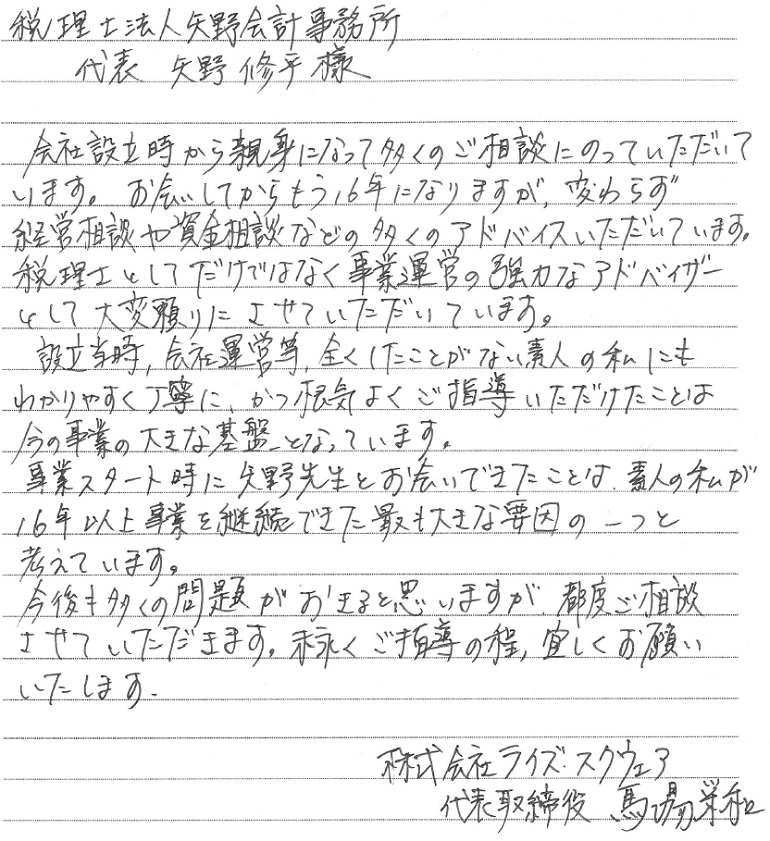 税理士法人矢野会計事務所
代表 矢野修平様
会社設立時から親身になって多くのご相談にのっていただいて
います。お会いしてからもう16年になりますが、変わらず
経営相談や資金相談などの多くのアドバイスいただいています。
税理士としてだけではなく事業運営の強力なアドバイザー
として大変頼りにさせていただいています。
設立当時、会社運営等、全くしたことがない素人の私にも
わかりやすく丁寧に、かつ根気よくご指導いただけたことは
今の事業の大きな基盤となっています。
事業スタート時に矢野先生とお会いできたことは、素人の私が
16年以上事業を継続できた最も大きな要因の一つと
考えています。
今後も多くの問題がおきると思いますが、都度ご相談
させていただきます。末永くご指導の程、宜しくお願い
いたします。
株式会社ライズ・スクウェア
代表取締役 馬場栄和